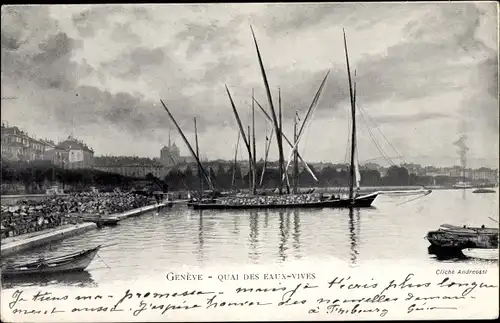 Cliché Andreossi
GENÈVE - QUAI DES EAUX-VIVES
Je tiens ma promesse - mais je t'écris plus longue-
ment aussi. J'espère trouver des nouvelles demain
à Fribourg